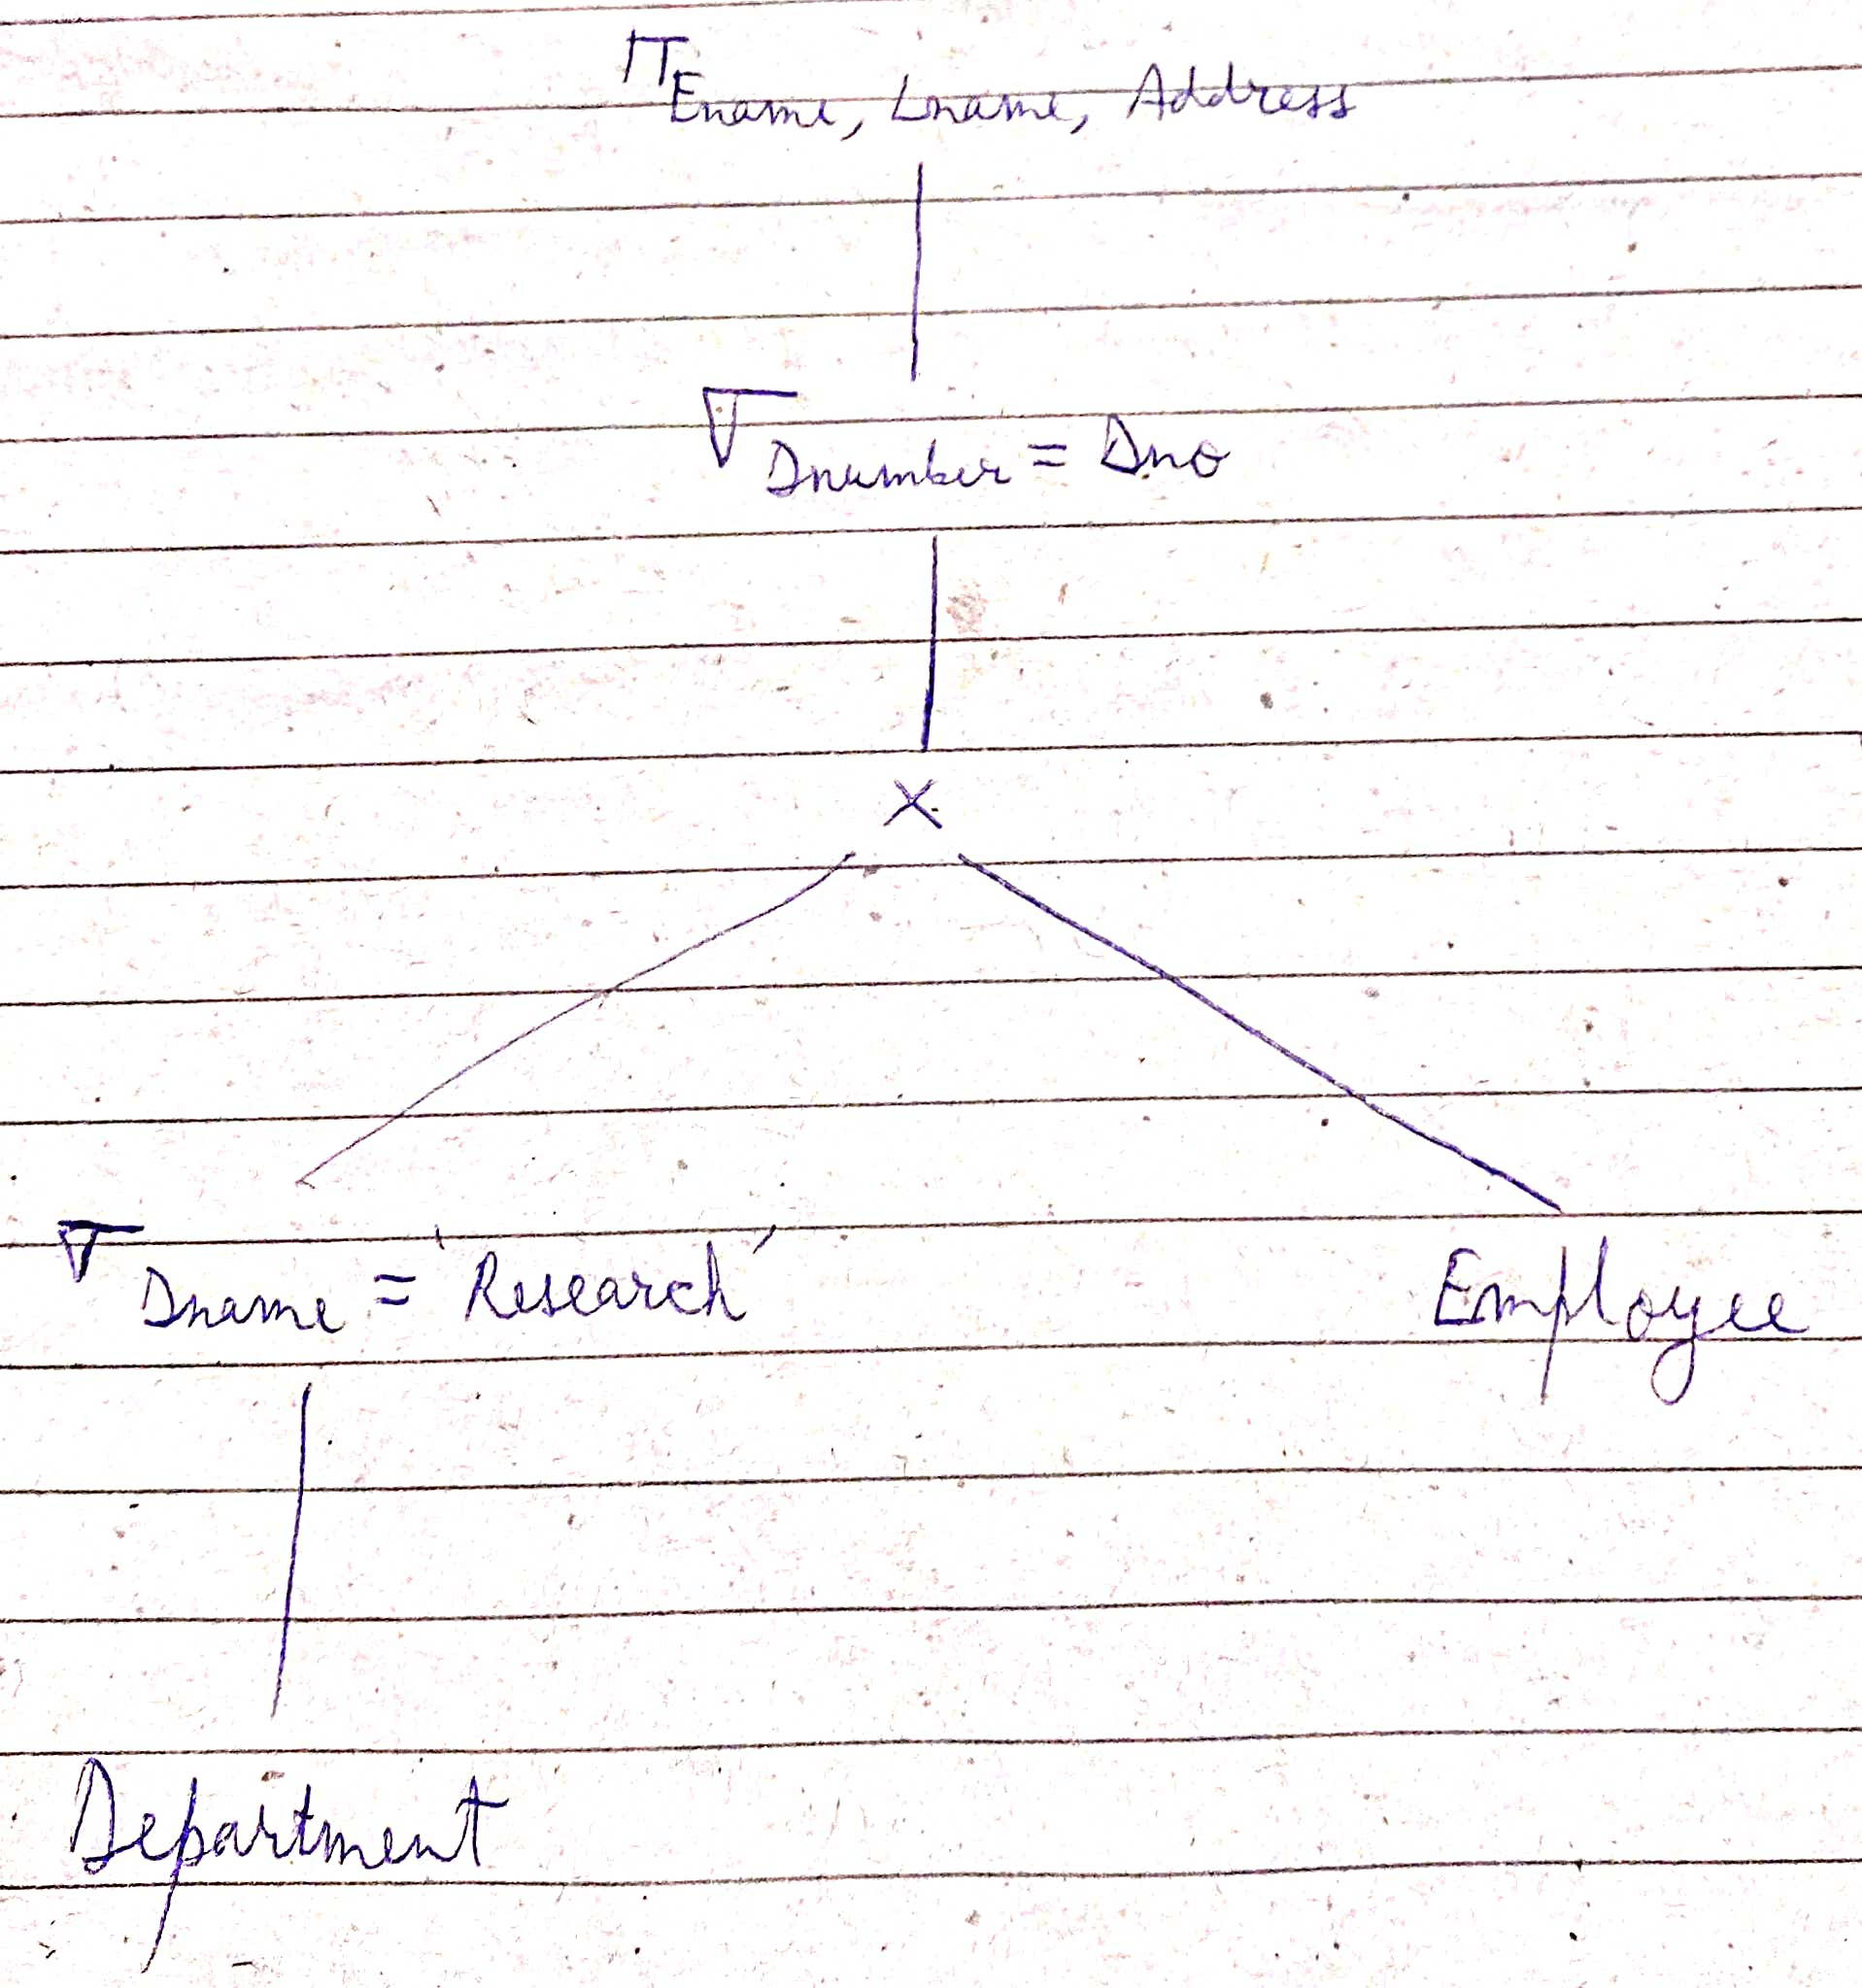 π Ename, Lname, Address
σ Dnumber = Dno
×
σ Dname = 'Research'
Employee
Department